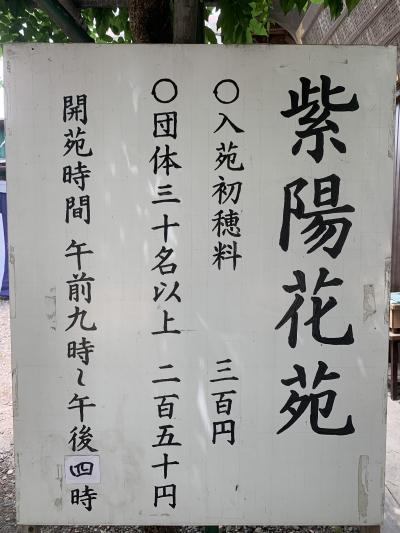 紫陽花苑
〇入苑初穂料 三百円
〇団体三十名以上 二百五十円
開苑時間 午前九時~午後四時